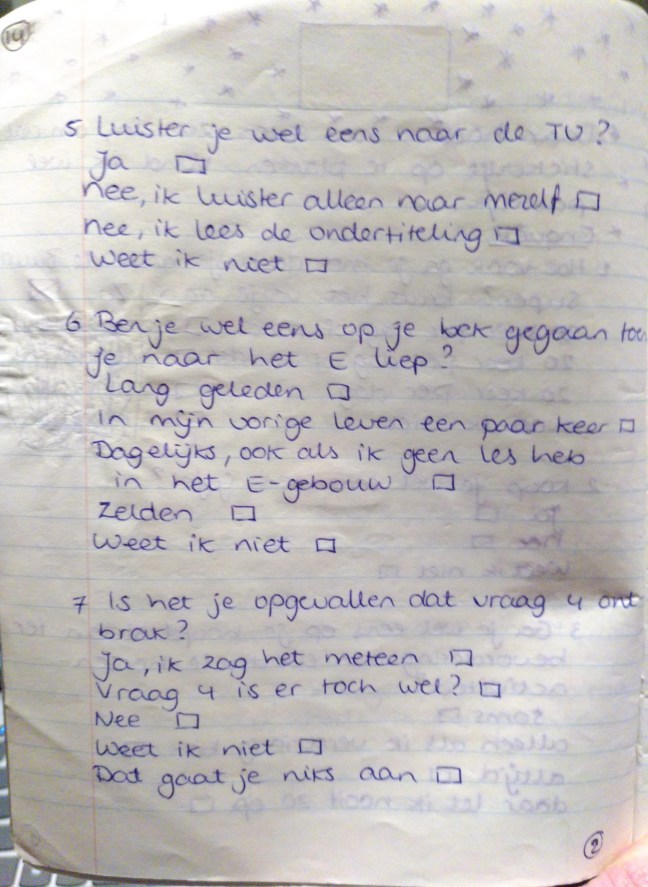 14
5 Luister je wel eens naar de TV?
Ja
nee, ik luister alleen naar mezelf
nee, ik lees de ondertiteling
weet ik niet
6 Ben je wel eens op je bek gegaan toen
je naar het E liep?
Lang geleden
In mijn vorige leven een paar keer
Dagelijks, ook als ik geen les heb
in het E-gebouw
Zelden
Weet ik niet
7 Is het je opgevallen dat vraag 4 ont
brak?
Ja, ik zag het meteen
Vraag 4 is er toch wel?
Nee
Weet ik niet
Dat gaat je niks aan
2